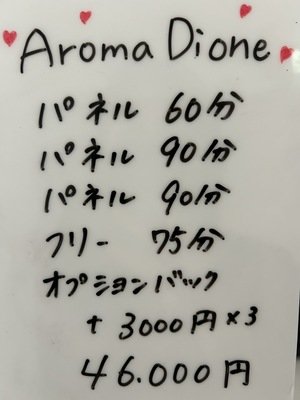 Aroma Dione
パネル 60分
パネル 90分
パネル 90分
フリー 75分
オプションバック
+ 3000円×3
46.000円